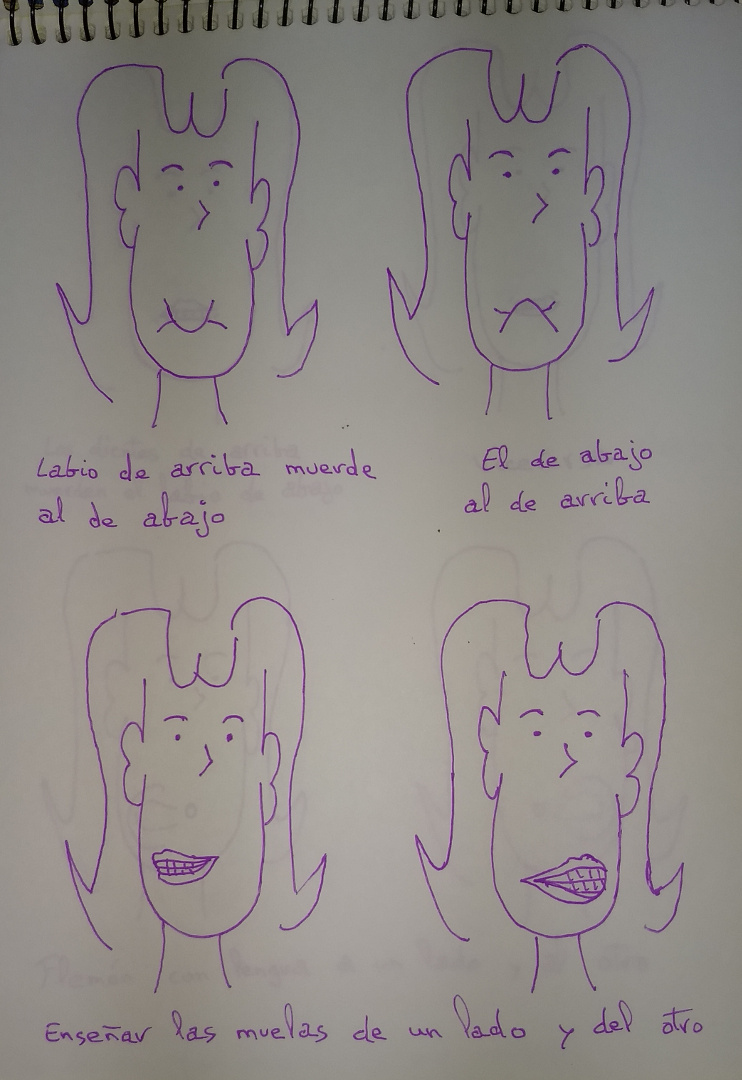 Labio de arriba muerde
al de abajo
El de abajo
al de arriba
Enseñar las muelas de un lado y del otro